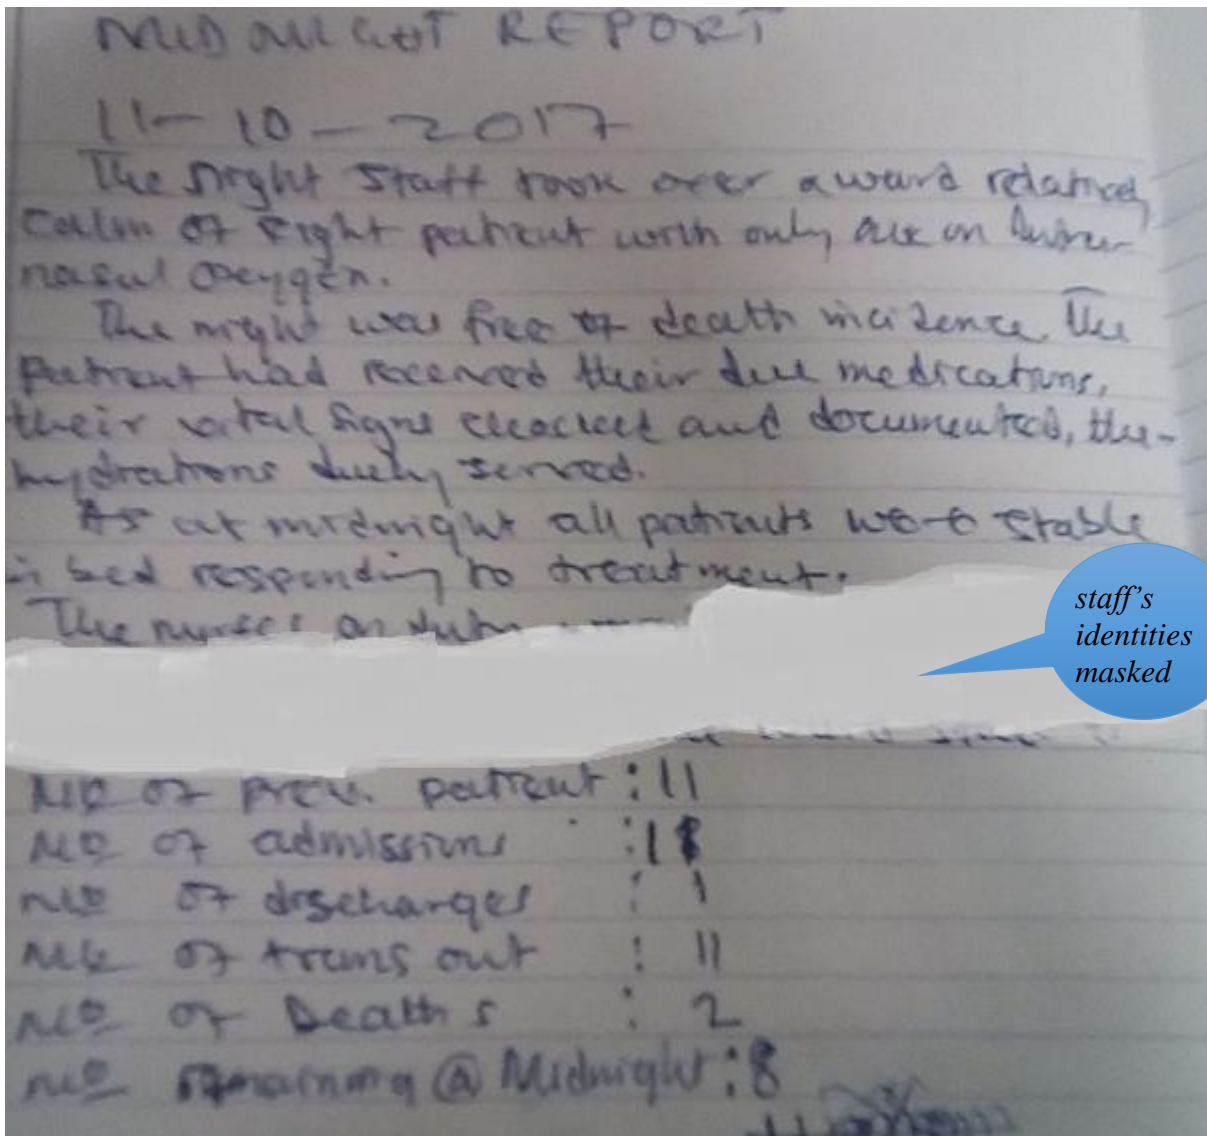 MIDNIGHT REPORT
11-10-2017
The night staff took over a ward relatively
calm of eight patient with only one on
nasal oxygen.
The night was free of death incidence. The
patient had received their due medications,
their vital signs checked and documented, the
hydrations duly served.
As at midnight all patients were stable
in bed responding to treatment.
The nurses on duty
staff's
identities
masked
No of prev. patient : 11
No of admissions :
No of discharges : 1
No of trans out : 11
No of Deaths : 2
No remaining @ Midnight : 8